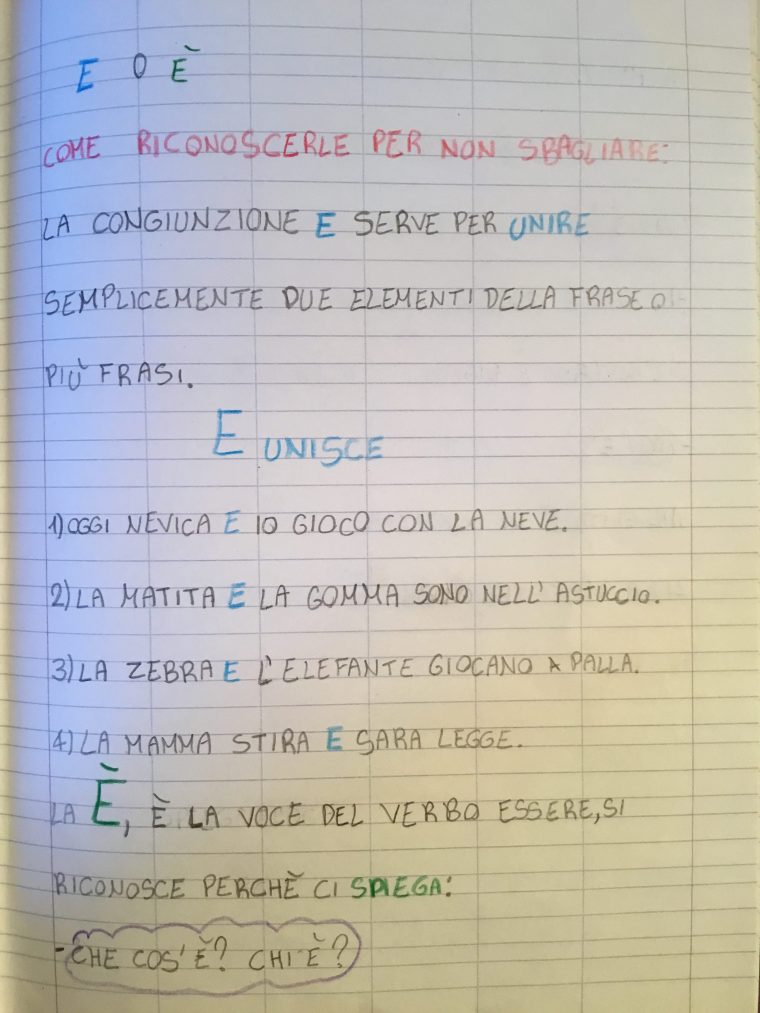 E O È
COME RICONOSCERLE PER NON SBAGLIARE:
LA CONGIUNZIONE E SERVE PER UNIRE
SEMPLICEMENTE DUE ELEMENTI DELLA FRASE O
PIÙ FRASI.
E UNISCE
1) OGGI NEVICA E IO GIOCO CON LA NEVE.
2) LA MATITA E LA GOMMA SONO NELL'ASTUCCIO.
3) LA ZEBRA E L'ELEFANTE GIOCANO A PALLA.
4) LA MAMMA STIRA E SARA LEGGE.
LA È, È LA VOCE DEL VERBO ESSERE, SI
RICONOSCE PERCHÈ CI SPIEGA:
- CHE COS'È? CHI È?